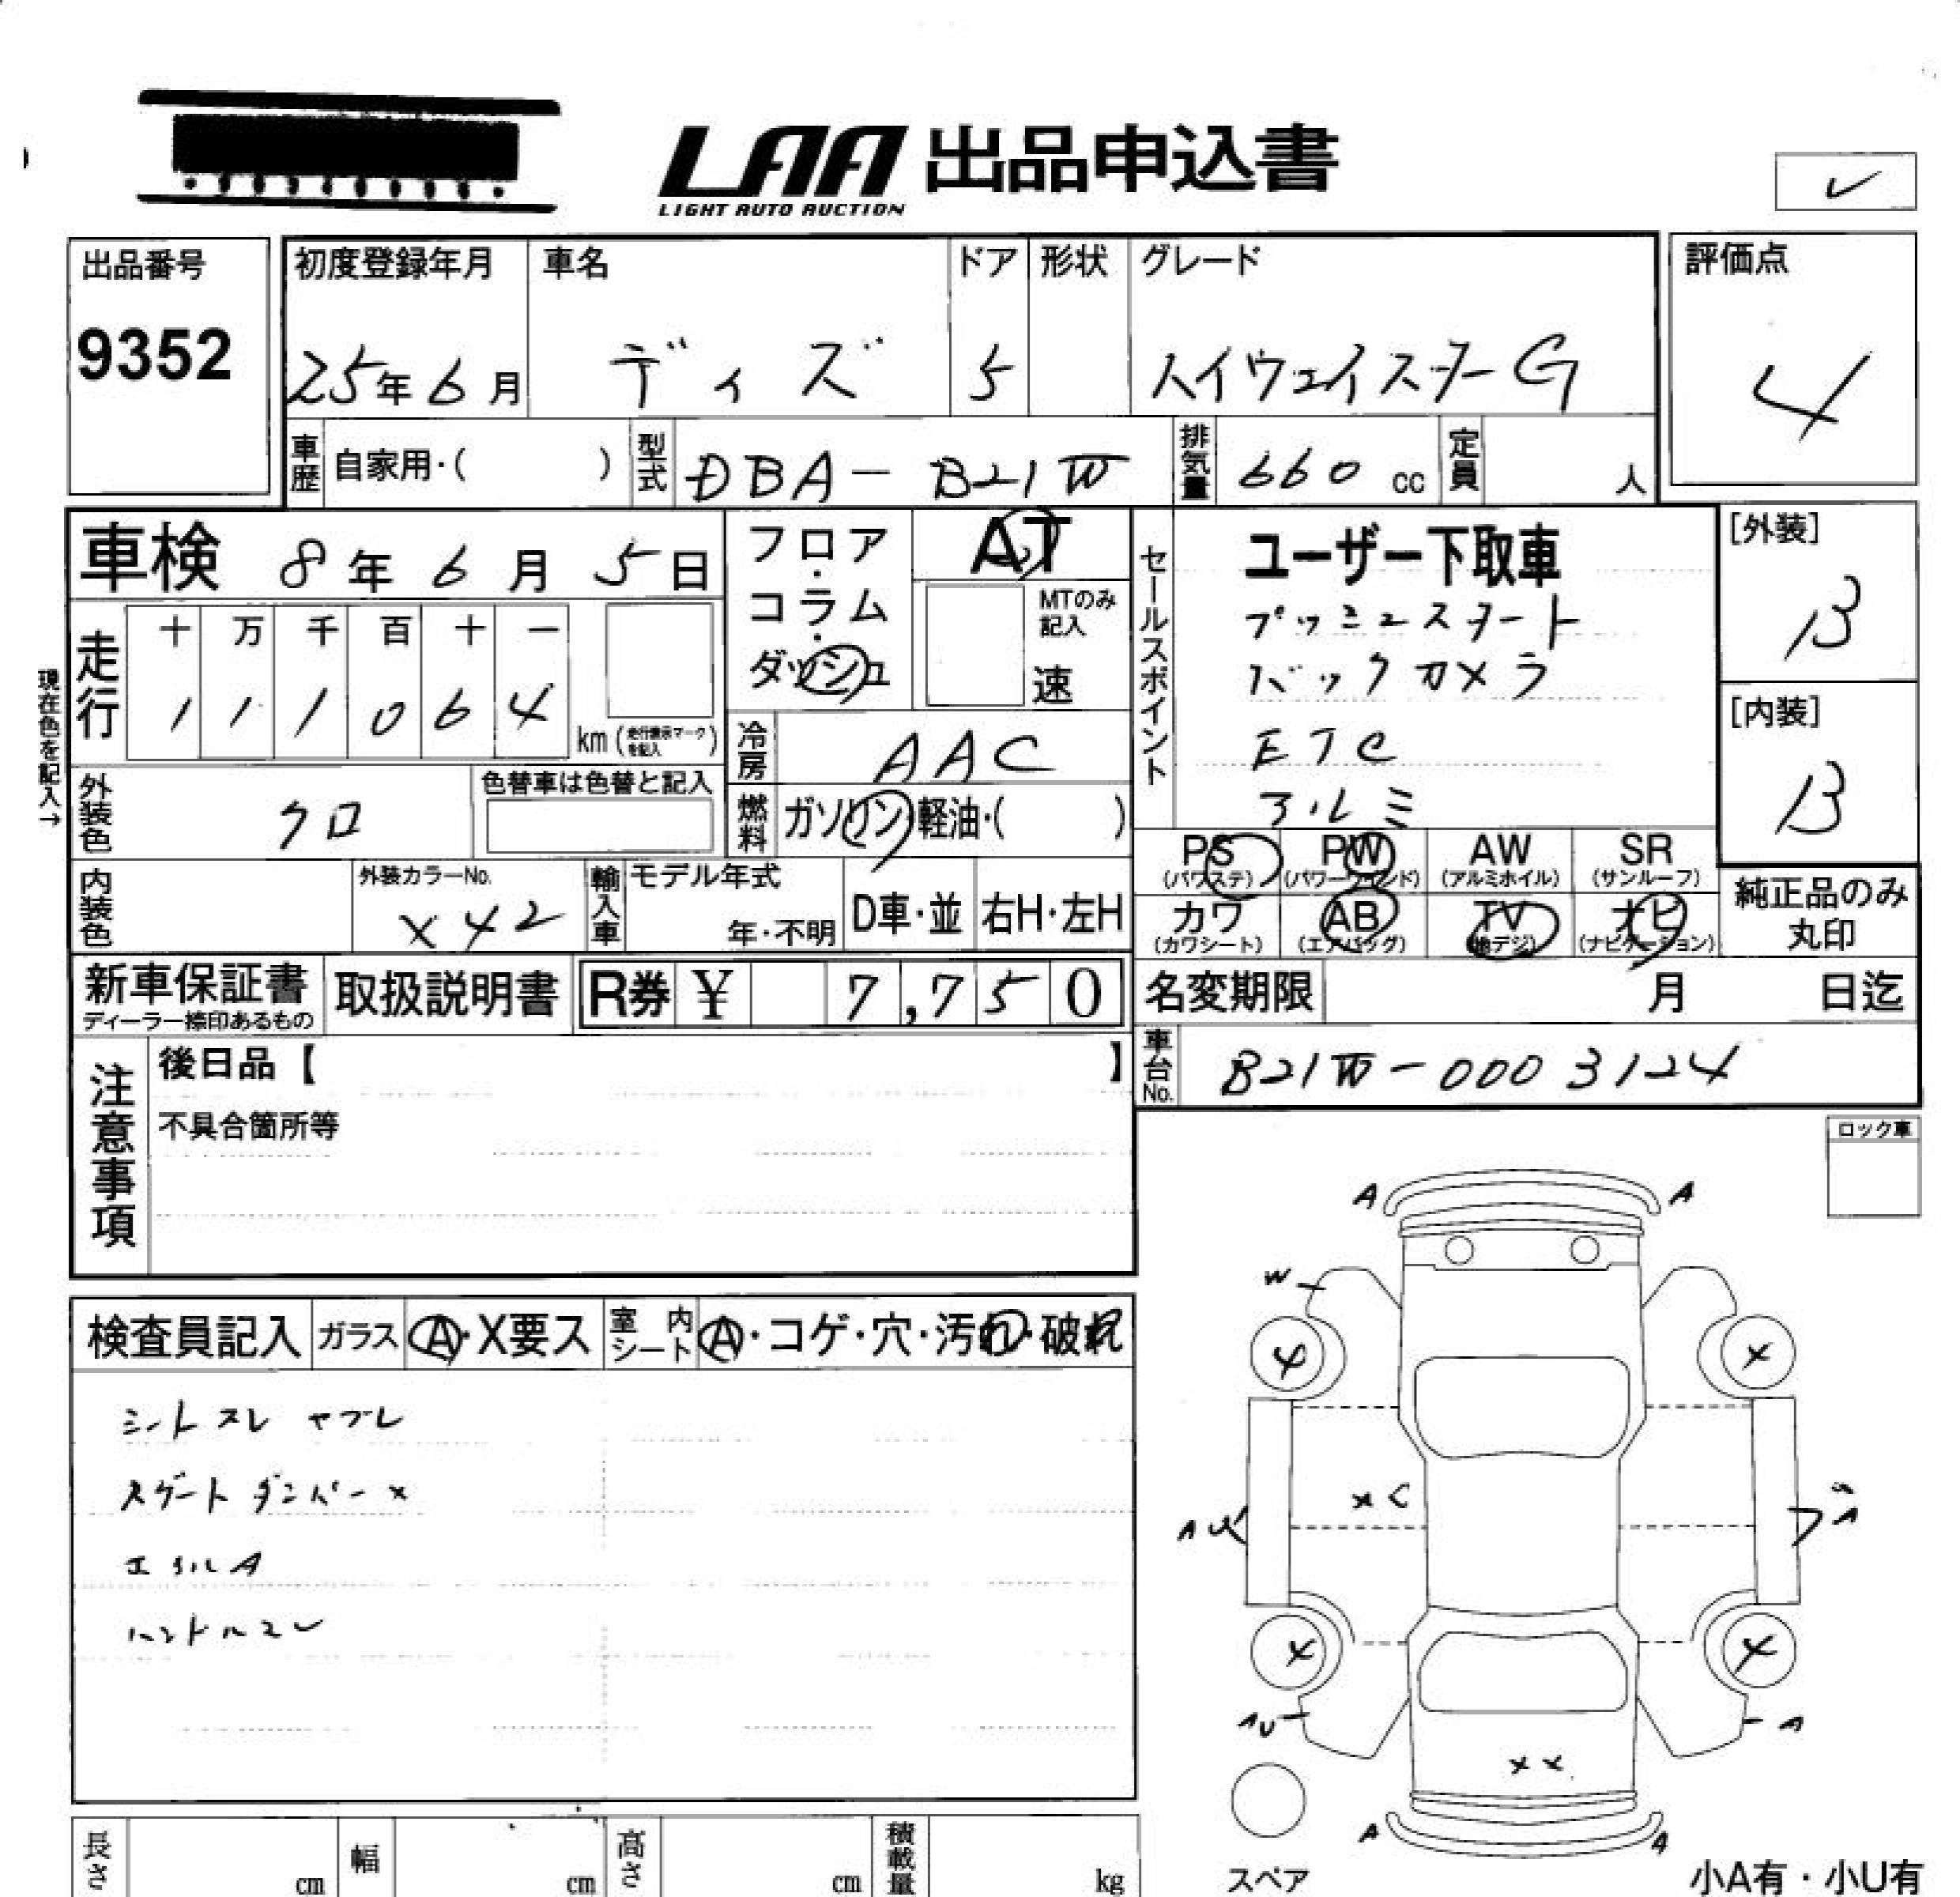 LAA 出品申込書
LIGHT AUTO AUCTION
出品番号
9352
初度登録年月
25年6月
車名
ディズ
ドア
5
形状
グレード
ハイウェイスターG
評価点
4
車歴 自家用・( )
型式 DBA-B21W
排気量 660 cc
定員 人
車検 8年6月5日
走行
十 万 千 百 十 一
1 1 1 0 6 4
km (走行表示マークを記入)
現在色を記入→
外装色 クロ
色替車は色替と記入
内装色
外装カラーNo.
X42
フロア・コラム・ダッシュ
AT
MTのみ記入
速
冷房 AAC
燃料 ガソリン・軽油・( )
輸入車
モデル年式
年・不明
D車・並
右H・左H
セールスポイント
ユーザー下取車
プッシュスタート
バックカメラ
ETC
アルミ
[外装]
B
[内装]
B
PS (パワステ)
PW (パワーウインド)
AW (アルミホイル)
SR (サンルーフ)
カワ (カワシート)
AB (エアバッグ)
TV (地デジ)
ナビ (ナビゲーション)
純正品のみ
丸印
新車保証書
ディーラー捺印あるもの
取扱説明書
R券 ¥ 7,750
名変期限 月 日迄
車台No. B21W-0003124
注意事項
後日品【 】
不具合箇所等
ロック車
検査員記入
ガラス A・X要ス
室内シート A・コゲ・穴・汚れ・破れ
シートスレ ヤブレ
ハンドルスレ
A A
W
X X
X C
A
A
X X
A
X X
A A
スペア
長さ cm
幅 cm
高さ cm
積載量 kg
小A有・小U有